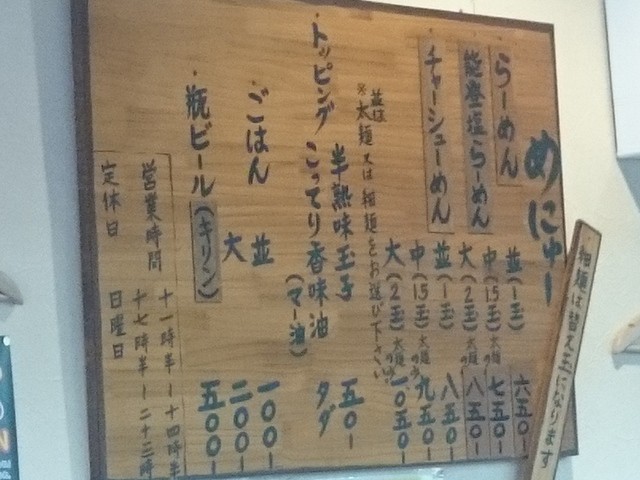 めにゅー
らーめん
能登塩らーめん
並(一玉) 六五〇ー
中(1.5玉)太麺のみ 七五〇ー
大(2玉)太麺のみ 八五〇ー
チャーシューめん
並(一玉) 八五〇ー
中(1.5玉)太麺のみ 九五〇ー
大(2玉)太麺のみ 一〇五〇ー
並は
※太麺又は細麺をお選び下さい
・トッピング 半熟味玉子 五〇ー
こってり香味油(マー油) タダ
・ごはん 並 一〇〇ー
大 二〇〇ー
・瓶ビール(キリン) 五〇〇ー
営業時間 十一時半ー十四時半
十七時半ー二十三時
定休日 日曜日
細麺は替え玉になります